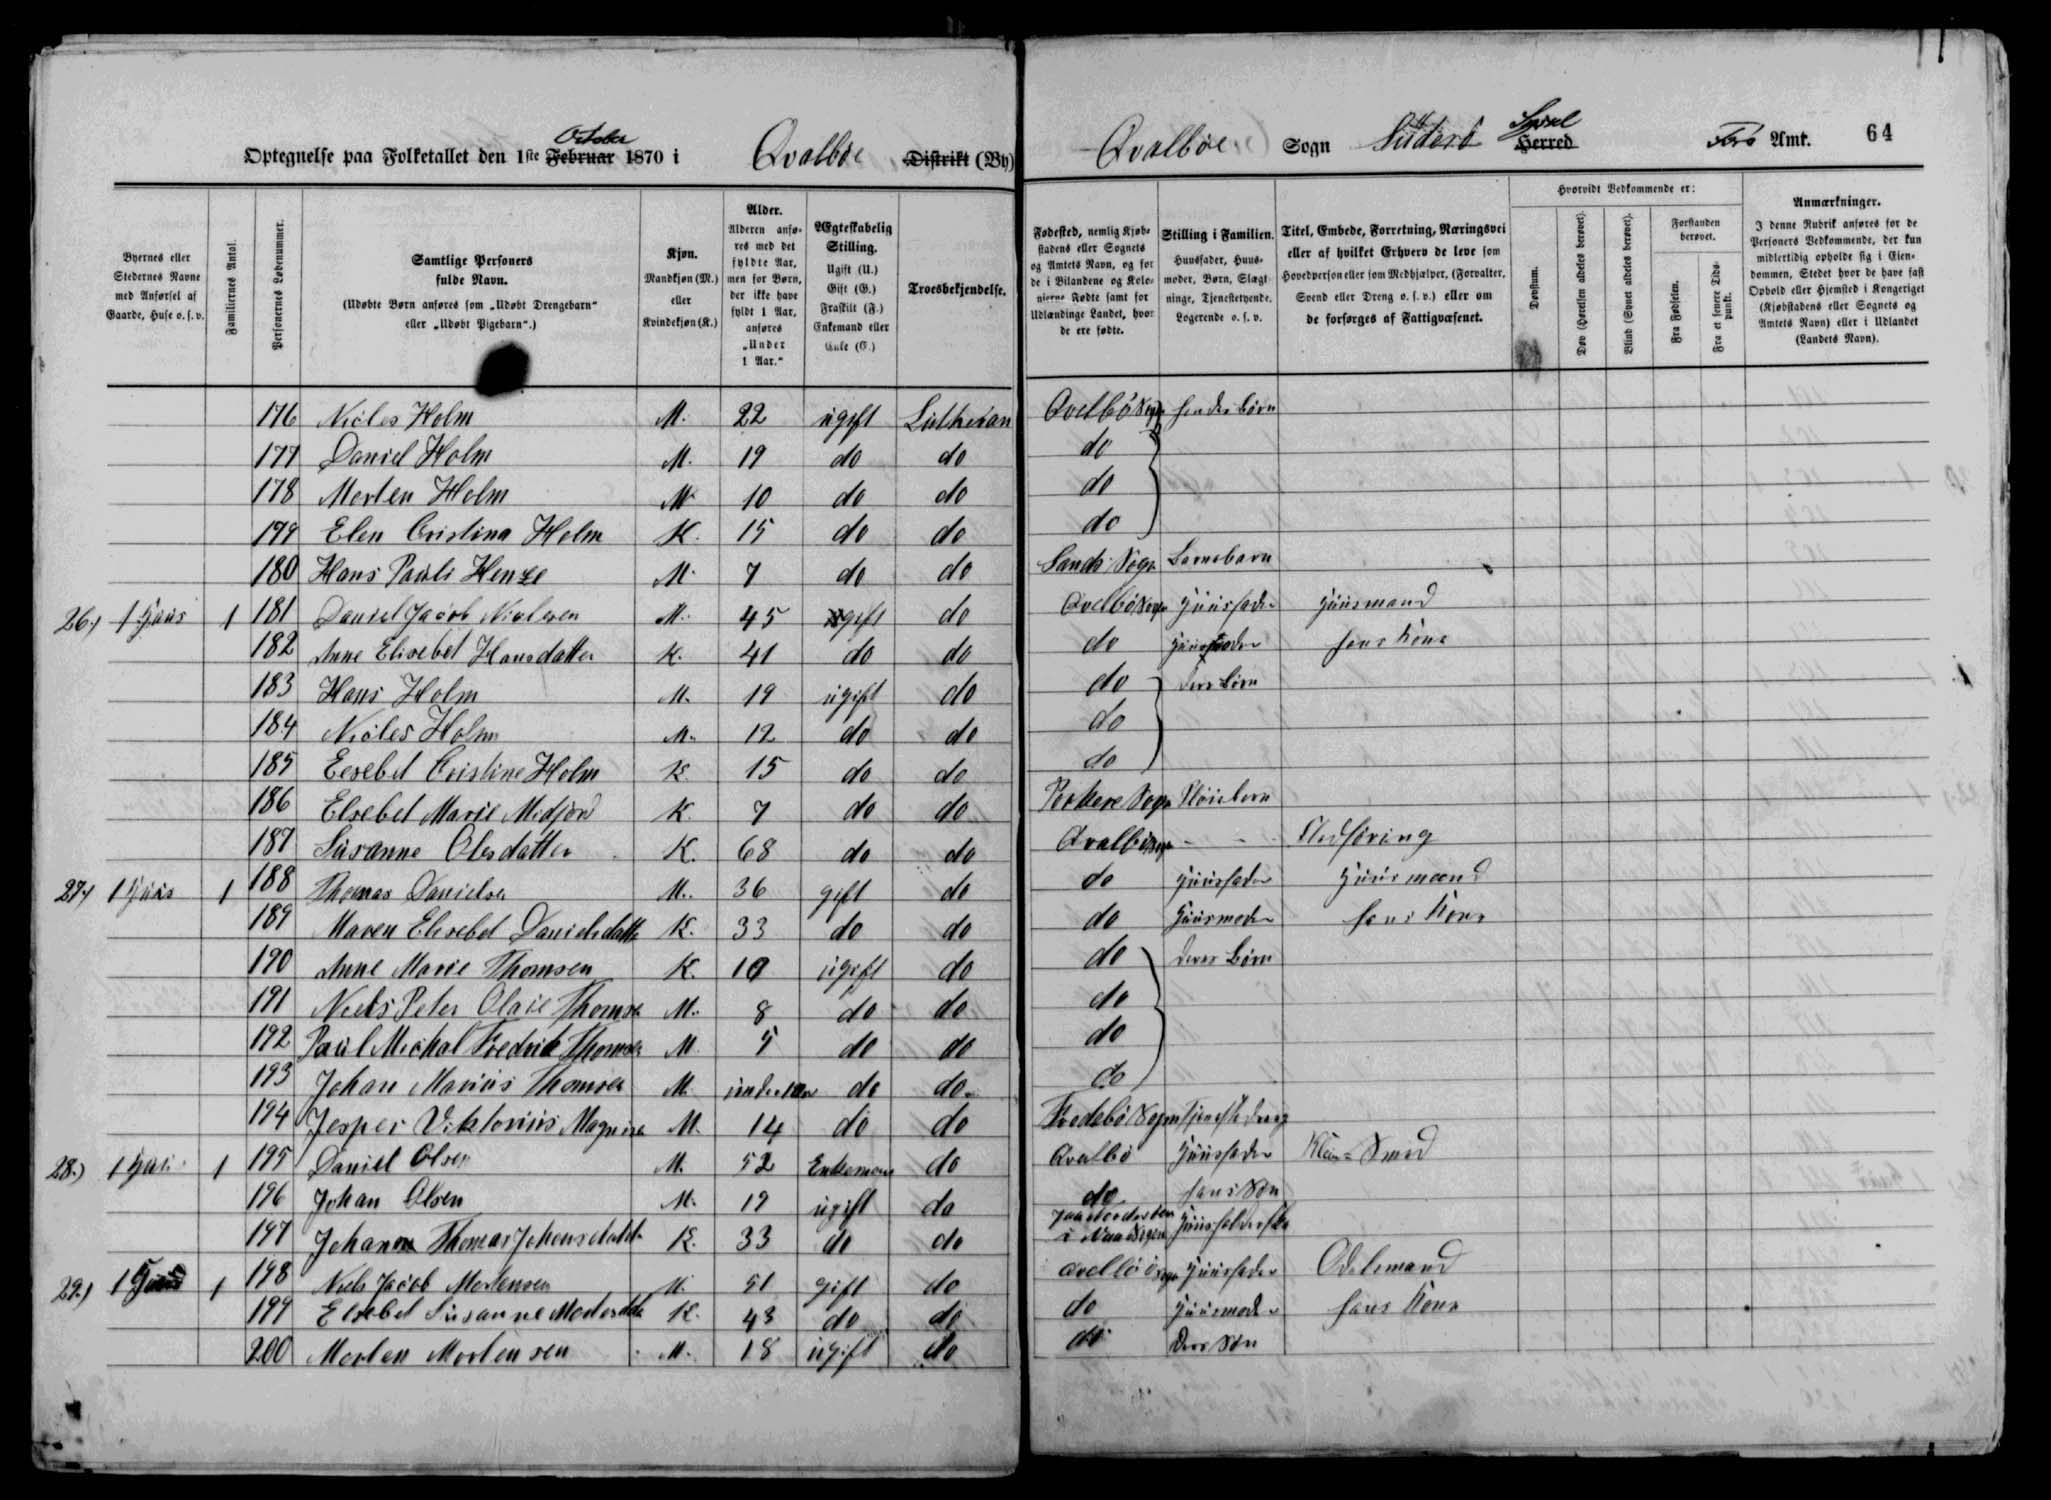 Optegnelse paa Folketallet den 1ste Februar October 1870 i Qvalböe Distrikt (By)
Byernes eller Stedernes Navne med Anførsel af Gaarde, Huse o. s. v.
Familiernes Antal.
Personernes Løbenummer.
Samtlige Personers fulde Navn.
(Udøbte Børn anføres som „Udøbt Drengebarn“ eller „Udøbt Pigebarn“.)
Kjøn.
Mandkjøn (M.) eller Kvindekjøn (K.)
Alder.
Alderen anføres med det fyldte Aar, men for Børn, der ikke have fyldt 1 Aar, anføres „Under 1 Aar.“
Ægteskabelig Stilling.
Ugift (U.) Gift (G.) Fraskilt (F.) Enkemand eller Enke (E.)
Troesbekjendelse.
176 Nicles Holm M. 22 ugift Lutheran
177 Daniel Holm M. 19 do do
178 Morten Holm M 10 do do
179 Elen Cristina Holm K. 15 do do
180 Hans Pauli Henze M. 7 do do
26.) 1 Huus 1 181 Daniel Jacob Niclesen M. 45 gift do
182 Anne Elisebet Hansdatter K. 41 do do
183 Hans Holm M. 19 ugift do
184 Nicles Holm M. 12 do do
185 Cristine Holm K. 15 do do
186 Elsebet Marie Midjord K. 7 do do
187 Susanne Olesdatter K. 68 do do
27.) 1 Huus 1 188 Thomas Danielsen M. 36 gift do
189 Maren Elisebet Danielsdatter K. 33 do do
190 Anne Marie Thomsen K. 10 ugift do
191 Niels Peter Thomsen M. 8 do do
192 Paul Michal Fredrik Thomsen M. 5 do do
193 Johan Marius Thomsen M. under 1 Aar do do
194 Jesper Viktorius Magnusen M. 14 do do
28.) 1 Huus 1 195 Daniel Olsen M. 52 Enkemand do
196 Johan Olsen M. 19 ugift do
197 Johanne Thomas K. 33 do do
29.) 1 1 198 Niels Jacob Mortensen M. 51 gift do
199 Elsebet Susanne K. 43 do do
200 Morten Mortensen M. 18 ugift do
Qvalböe Sogn Suderö Herred Sysel Færö Amt. 64
Fødested, nemlig Kjøbstadens eller Sognets og Amtets Navn, og for de i Bilandene og Kolonierne Fødte samt for Udlændinge Landet, hvor de ere fødte.
Stilling i Familien.
Huusfader, Huusmoder, Børn, Slægtninge, Tjenestetyende, Logerende o. s. v.
Titel, Embede, Forretning, Næringsvei eller af hvilket Erhverv de leve som Hovedperson eller som Medhjælper, (Forvalter, Svend eller Dreng o. s. v.) eller om de forsørges af Fattigvæsenet.
Hvorvidt Vedkommende er:
Døvstum.
Døv (Hørelsen aldeles berøvet).
Blind (Synet aldeles berøvet).
Forstanden berøvet.
Fra Fødselen.
Fra et senere Tidspunkt.
Anmærkninger.
I denne Rubrik anføres for de Personers Vedkommende, der kun midlertidig opholde sig i Eiendommen, Stedet hvor de have fast Ophold eller Hjemsted i Kongeriget (Kjøbstadens eller Sognets og Amtets Navn) eller i Udlandet (Landets Navn).
Qvalbö Sogn hendes börn
do
do
do
Sands Sogn Barnebarn
Qvalbö Sogn Huusfader Huusmand
do Huusmoder hans Kone
do deres börn
do
do
Porkere Sogn Pleiebarn
Qvalbö Sogn - -
do Huusfader Huusmand
do Huusmoder hans Kone
do deres börn
do
do
do
Frodebö Sogn Tjenestedreng
Qvalbö Huusfader Smed
do hans Sön
Huusholderske
Qvalbö Sogn Huusfader Odelsmand
do Huusmoder hans Kone
do deres Sön